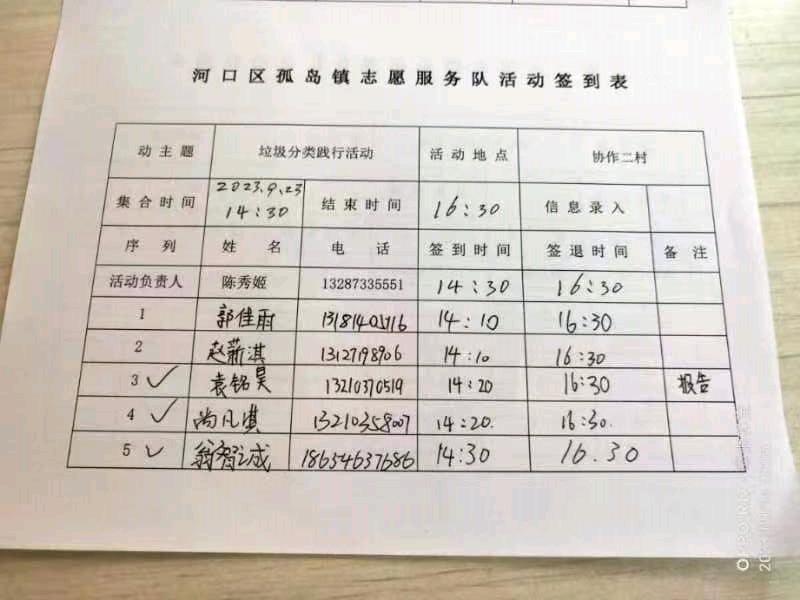 河口区孤岛镇志愿服务队活动签到表
动主题 垃圾分类践行活动 活动地点 协作二村
集合时间 2023.9.23 14:30 结束时间 16:30 信息录入
序列 姓名 电话 签到时间 签退时间 备注
活动负责人 陈秀姬 13287335551 14:30 16:30
1 郭佳雨 13181405716 14:10 16:30
2 赵薪淇 13127198906 14:10 16:30
3 ✓ 袁铭昊 13210370519 14:20 16:30 报告
4 ✓ 尚凡淇 13210358007 14:20. 16:30.
5 ✓ 翁智成 18654637686 14:30 16.30